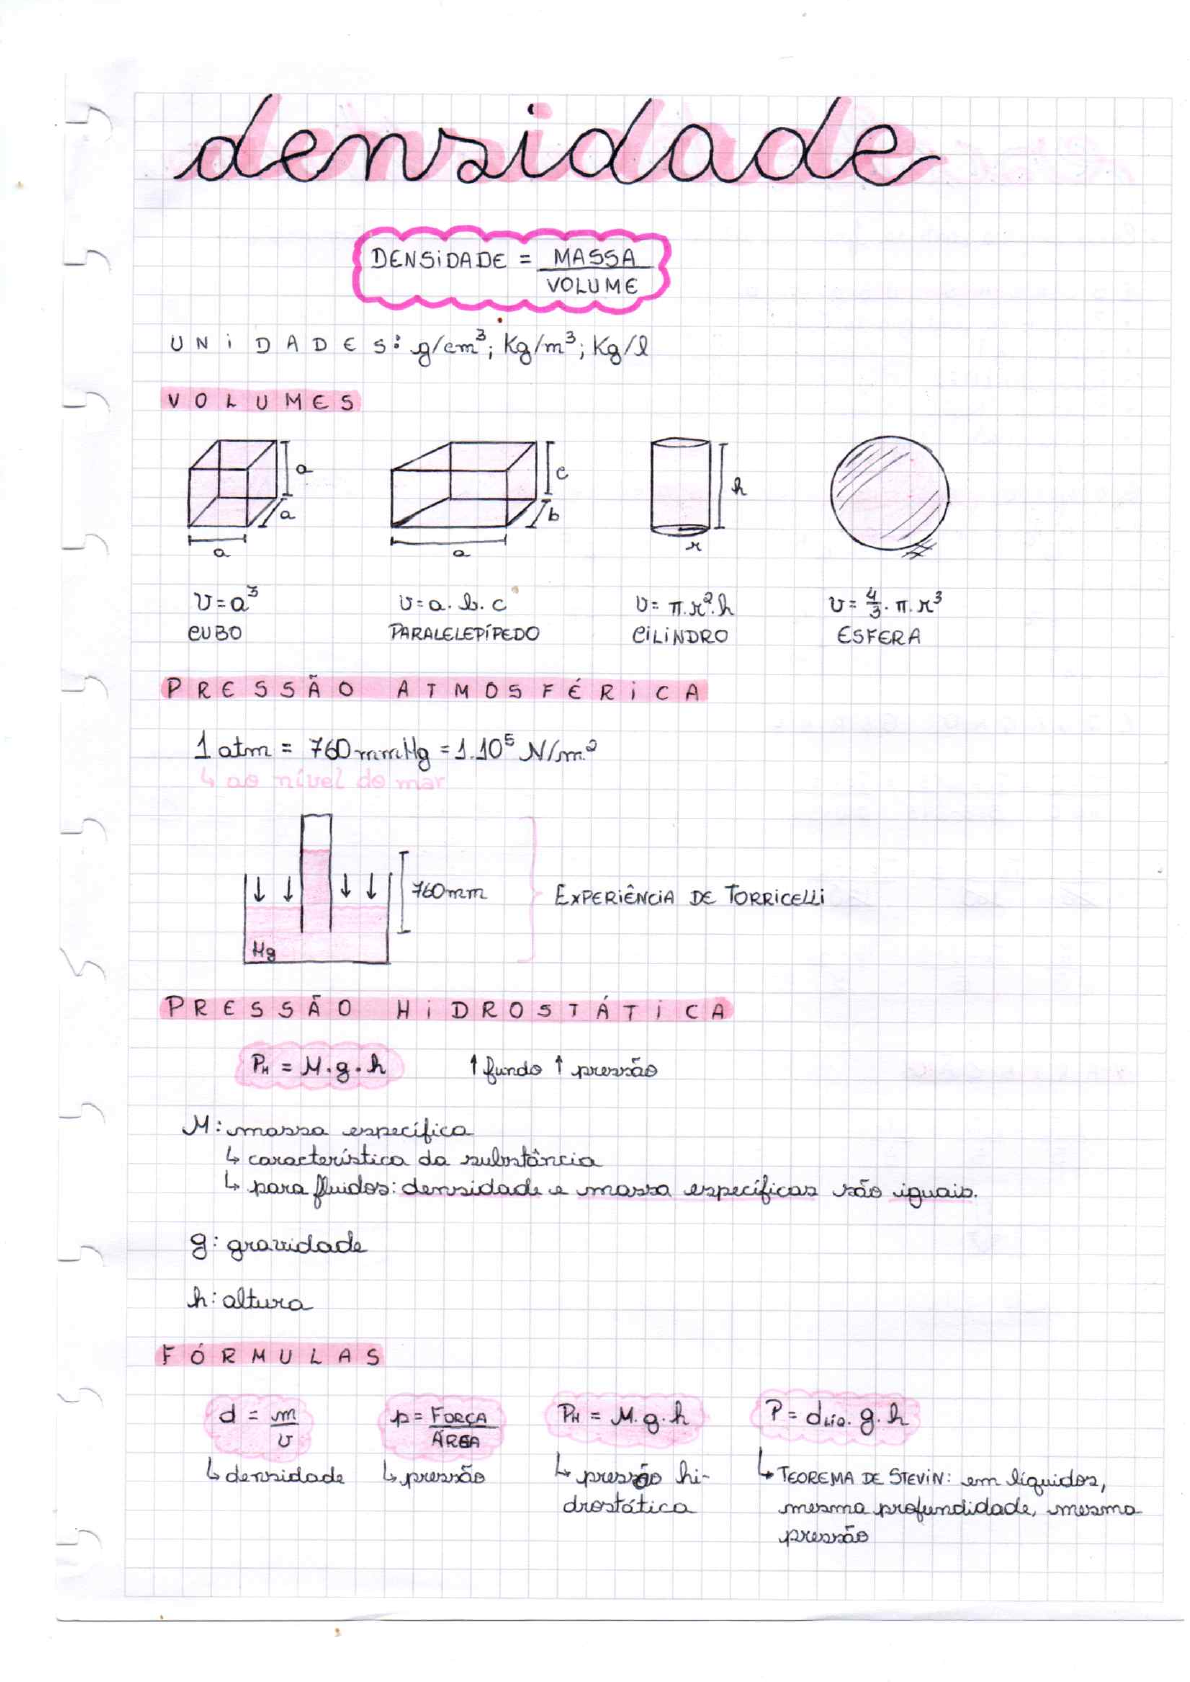 densidade
DENSiDADE = MASSA
VOLUME
UNiDADES: g/cm³; Kg/m³; Kg/l
VOLUMES
a
a
a
c
b
a
h
r
v=a³
v=a.b.c
v=π.r².h
v=4/3.π.r³
CUBO
PARALELEPÍPEDO
CiLiNDRO
ESFERA
PRESSÃO ATMOSFÉRiCA
1 atm = 760 mmHg = 1.10⁵ N/m²
↳ ao nível do mar
760mm
EXPERiÊNCiA DE TORRiCELLi
Hg
PRESSÃO HiDROSTÁTiCA
PH = M.g.h
↑ fundo ↑ pressão
M: massa específica
↳ característica da substância
↳ para fluidos: densidade e massa específicas são iguais.
g: gravidade
h: altura
FÓRMULAS
d = m/v
p = FORÇA/ÁREA
PH = M.g.h
P = dLíq. g.h
↳ densidade
↳ pressão
↳ pressão hi-
drostática
↳ TEOREMA DE STEViN: em líquidos,
mesma profundidade, mesma
pressão